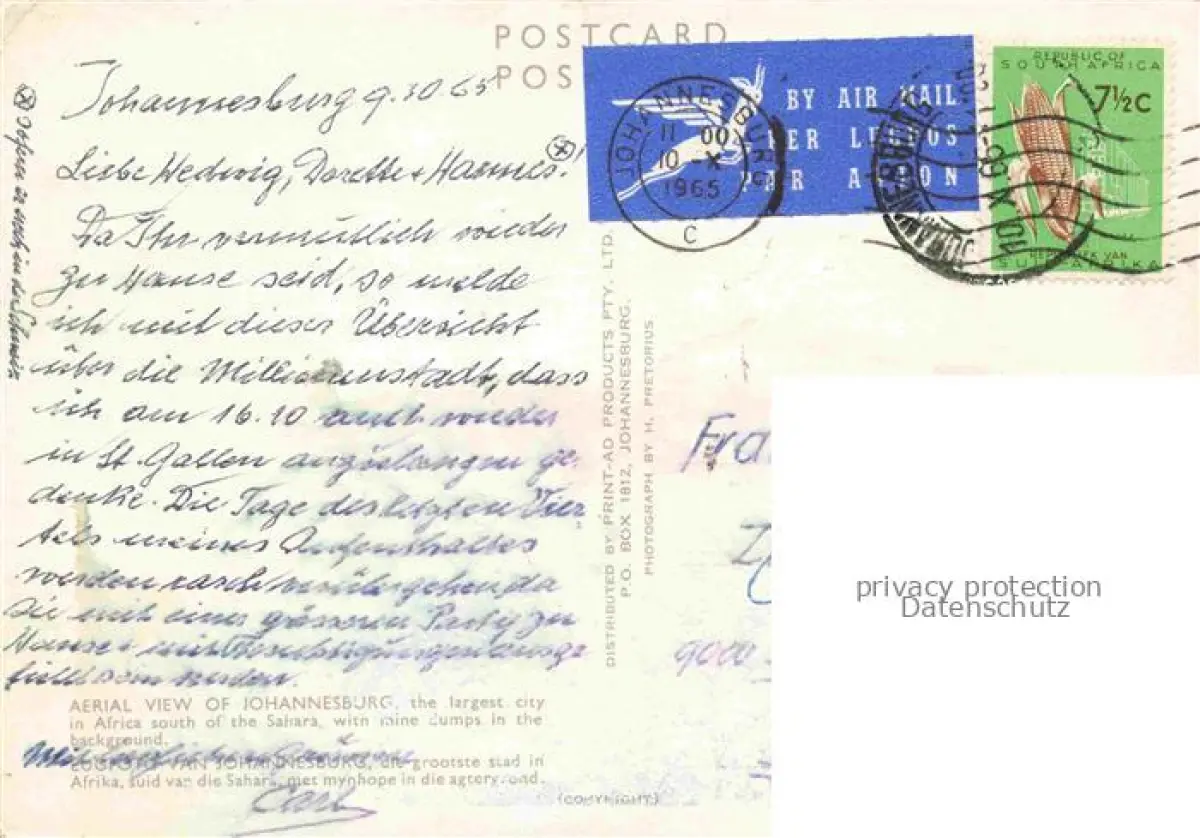 POSTCARD
POS
Johannesburg 9.10.65
Liebe Hedwig, Dorette + Hannes!
Da Ihr vermutlich wieder
zu Hause seid, so melde
ich mit dieser Übersicht
über die Millionenstadt, dass
ich am 16.10 auch wieder
in St. Gallen anzulangen ge-
denke. Die Tage des letzten Vier-
tels meines Aufenthaltes
werden rasch vorübergehen da
sie mit einer grösseren Party zu
Hause + mit Besichtigungen ausge-
füllt sein werden.
Mit herzlichen Grüssen
Carl
noch in der Schweiz
AERIAL VIEW OF JOHANNESBURG, the largest city
in Africa south of the Sahara, with mine dumps in the
background.
LUGFOTO VAN JOHANNESBURG, die grootste stad in
Afrika, suid van die Sahara, met mynhope in die agtergrond.
(COPYRIGHT)
DISTRIBUTED BY PRINT-AD PRODUCTS PTY. LTD.
P.O. BOX 1812, JOHANNESBURG.
PHOTOGRAPH BY H. PRETORIUS
BY AIR MAIL
PER LUGPOS
PAR AVION
JOHANNESBURG
11 00
10 - X
1965
C
REPUBLIC OF
SOUTH AFRICA
7½C
REPUBLIEK VAN
SUID-AFRIKA
Fra
9000
privacy protection
Datenschutz